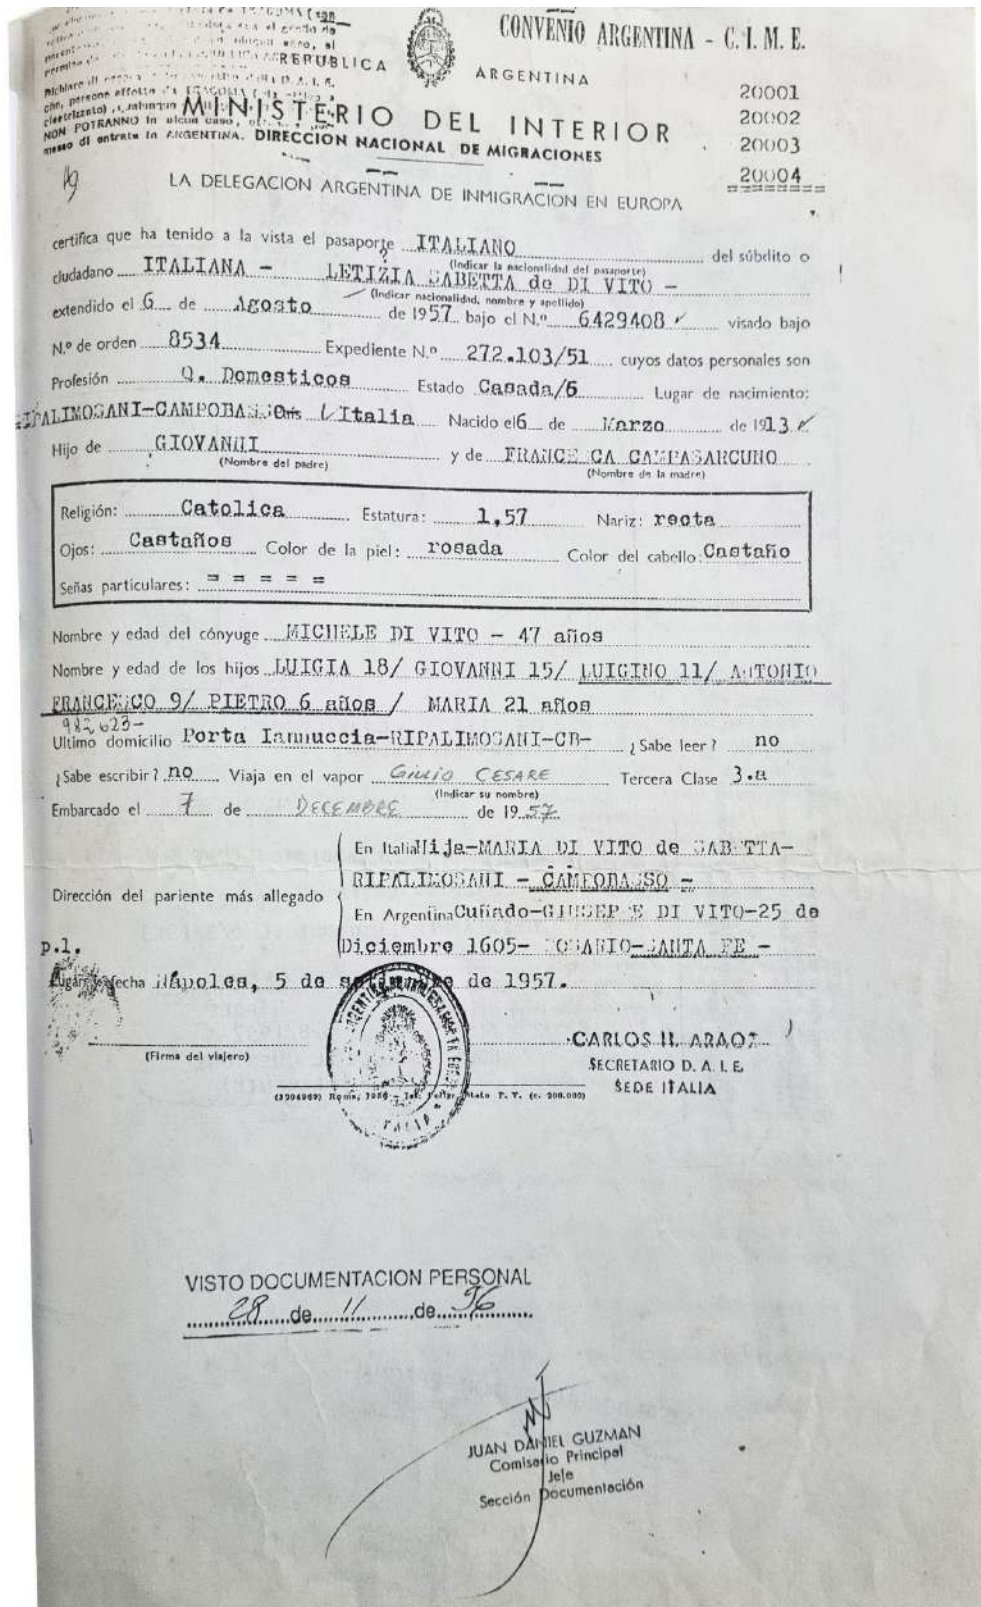 CONVENIO ARGENTINA - C. I. M. E.
REPUBLICA ARGENTINA
20001
20002
20003
20004
========
NON POTRANNO in
entrata in ARGENTINA.
MINISTERIO DEL INTERIOR
DIRECCION NACIONAL DE MIGRACIONES
LA DELEGACION ARGENTINA DE INMIGRACION EN EUROPA
certifica que ha tenido a la vista el pasaporte ITALIANO del súbdito o
(Indicar la nacionalidad del pasaporte)
ciudadano ITALIANA - LETIZIA SABETTA de DI VITO -
(Indicar nacionalidad, nombre y apellido)
extendido el 6 de Agosto de 1957 bajo el N.º 6429408 visado bajo
N.º de orden 8534 Expediente N.º 272.103/51 cuyos datos personales son
Profesión Q. Domesticos Estado Casada/6 Lugar de nacimiento:
RIPALIMOSANI-CAMPOBASSO Italia Nacido el 6 de Marzo de 1913
Hijo de GIOVANNI y de FRANCE CA CAMPASARCUNO
(Nombre del padre) (Nombre de la madre)
Religión: Catolica Estatura: 1,57 Nariz: recta
Ojos: Castaños Color de la piel: rosada Color del cabello: Castaño
Señas particulares: = = = = =
Nombre y edad del cónyuge MICHELE DI VITO - 47 años
Nombre y edad de los hijos LUIGIA 18/ GIOVANNI 15/ LUIGINO 11/ ANTONIO
FRANCESCO 9/ PIETRO 6 años / MARIA 21 años
982,623-
Ultimo domicilio Porta Iannuccia-RIPALIMOSANI-CB- ¿Sabe leer? no
¿Sabe escribir? no Viaja en el vapor GIULIO CESARE Tercera Clase 3.a
(Indicar su nombre)
Embarcado el 7 de DECEMBRE de 1957
Dirección del pariente más allegado
En Italia Hija-MARIA DI VITO de SABETTA-
RIPALIMOSANI - CAMPOBASSO -
En Argentina Cuñado-GIUSEPPE DI VITO-25 de
Diciembre 1605- ROSARIO-SANTA FE -
p.l.
Lugar y fecha Nápoles, 5 de septiembre de 1957.
(Firma del viajero)
CARLOS H. ARAOZ
SECRETARIO D. A. I. E.
SEDE ITALIA
VISTO DOCUMENTACION PERSONAL
28 de 11 de 96
JUAN DANIEL GUZMAN
Comisario Principal
Jefe
Sección Documentación